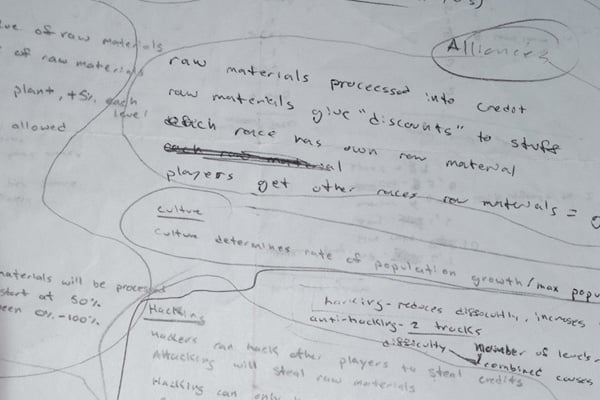 ve of raw materials
of raw materials
plant, +5% each
level
allowed
Alliances
raw materials processed into credit
raw materials give "discounts" to stuff
each race has own raw material
each raw material
players get other races raw materials =
culture
culture determines rate of population growth/max popu
materials will be processed
start at 50%
een 0%-100%
Hacking
Hackers can hack other players to steal credits
Attacking will steal raw materials
Hacking can only
hacking - reduces difficulty, increases
anti-hacking - 2 tracks
difficulty
number of levels
combined causes